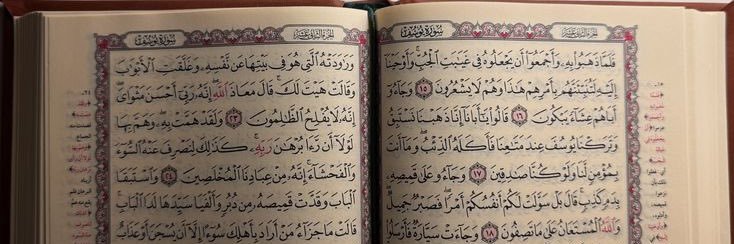 سُورَةُ يُوسُفَ
الجزء الثاني عشر
فَلَمَّا ذَهَبُوا۟ بِهِۦ وَأَجْمَعُوٓا۟ أَن يَجْعَلُوهُ فِى غَيَٰبَتِ ٱلْجُبِّ ۚ وَأَوْحَيْنَآ
إِلَيْهِ لَتُنَبِّئَنَّهُم بِأَمْرِهِمْ هَٰذَا وَهُمْ لَا يَشْعُرُونَ ١٥ وَجَآءُوٓ
أَبَاهُمْ عِشَآءً يَبْكُونَ ١٦ قَالُوا۟ يَٰٓأَبَانَآ إِنَّا ذَهَبْنَا نَسْتَبِقُ
وَتَرَكْنَا يُوسُفَ عِندَ مَتَٰعِنَا فَأَكَلَهُ ٱلذِّئْبُ ۖ وَمَآ أَنتَ
بِمُؤْمِنٍ لَّنَا وَلَوْ كُنَّا صَٰدِقِينَ ١٧ وَجَآءُو عَلَىٰ قَمِيصِهِۦ
بِدَمٍ كَذِبٍ ۚ قَالَ بَلْ سَوَّلَتْ لَكُمْ أَنفُسُكُمْ أَمْرًا ۖ فَصَبْرٌ جَمِيلٌ ۖ
وَٱللَّهُ ٱلْمُسْتَعَانُ عَلَىٰ مَا تَصِفُونَ ١٨ وَجَآءَتْ سَيَّارَةٌ فَأَرْسَلُوا۟
الجزء الثاني عشر
سُورَةُ يُوسُفَ
وَرَٰوَدَتْهُ ٱلَّتِى هُوَ فِى بَيْتِهَا عَن نَّفْسِهِۦ وَغَلَّقَتِ ٱلْأَبْوَٰبَ
وَقَالَتْ هَيْتَ لَكَ ۚ قَالَ مَعَاذَ ٱللَّهِ ۖ إِنَّهُۥ رَبِّىٓ أَحْسَنَ مَثْوَاىَ ۖ
إِنَّهُۥ لَا يُفْلِحُ ٱلظَّٰلِمُونَ ٢٣ وَلَقَدْ هَمَّتْ بِهِۦ ۖ وَهَمَّ بِهَا
لَوْلَآ أَن رَّءَا بُرْهَٰنَ رَبِّهِۦ ۚ كَذَٰلِكَ لِنَصْرِفَ عَنْهُ ٱلسُّوٓءَ
وَٱلْفَحْشَآءَ ۚ إِنَّهُۥ مِنْ عِبَادِنَا ٱلْمُخْلَصِينَ ٢٤ وَٱسْتَبَقَا
ٱلْبَابَ وَقَدَّتْ قَمِيصَهُۥ مِن دُبُرٍ وَأَلْفَيَا سَيِّدَهَا لَدَا ٱلْبَابِ ۚ
قَالَتْ مَا جَزَآءُ مَنْ أَرَادَ بِأَهْلِكَ سُوٓءًا إِلَّآ أَن يُسْجَنَ أَوْ عَذَابٌ